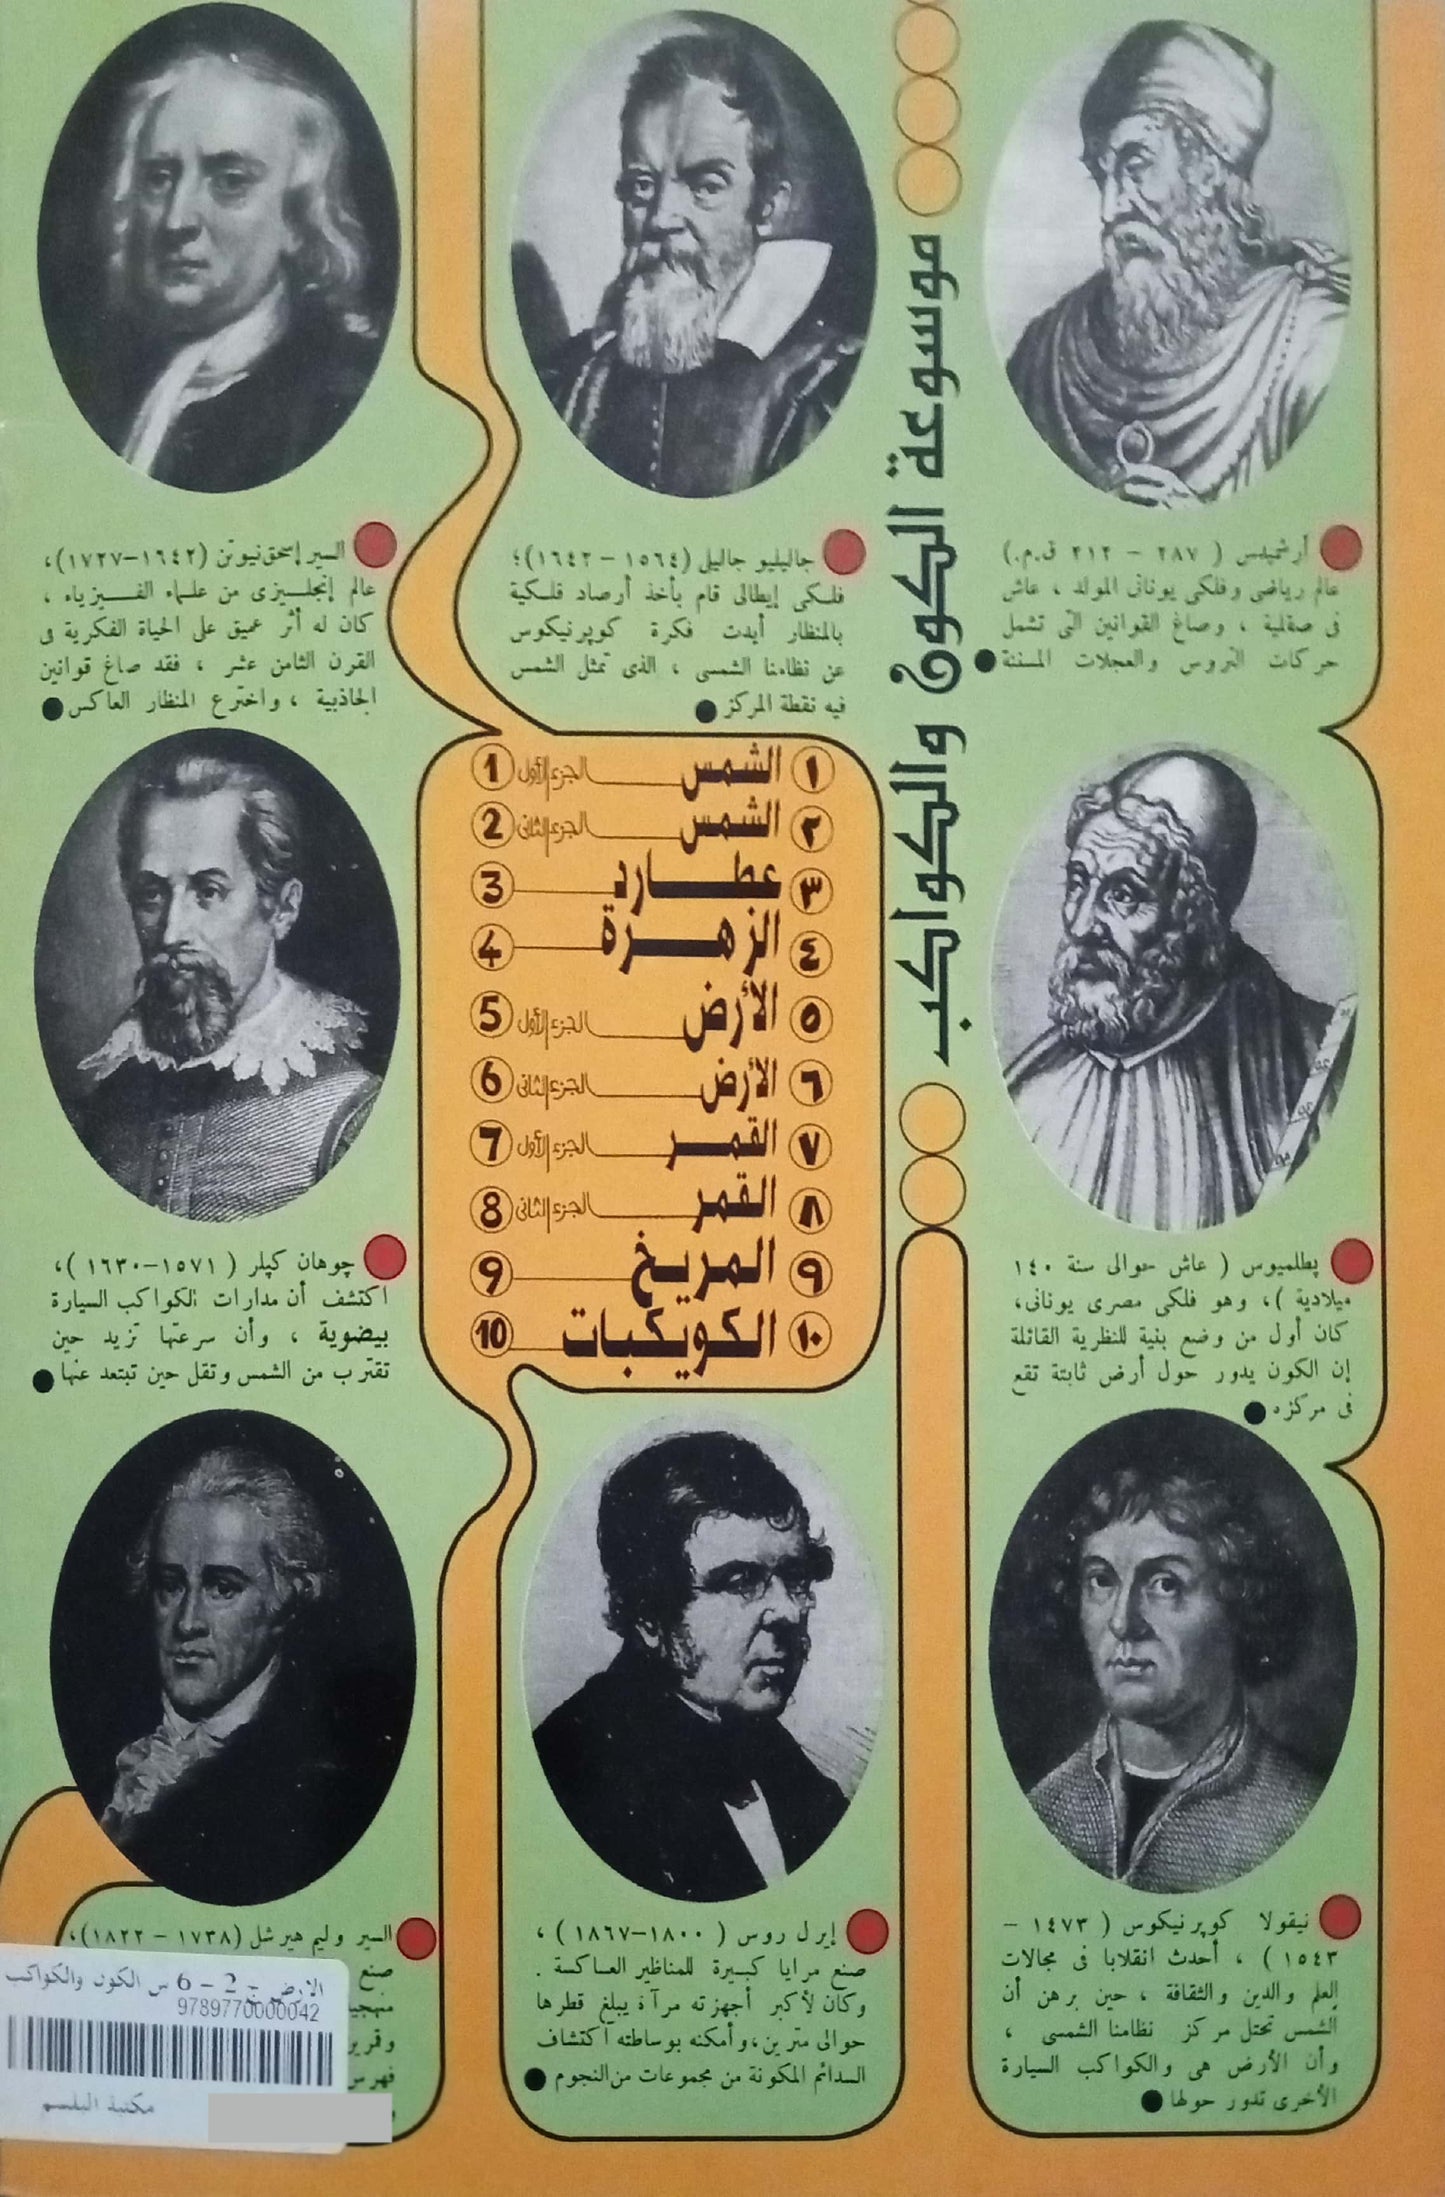 موسوعة الكون والكواكب
أرشميدس ( ٢٨٧ - ٢١٢ ق.م.)
عالم رياضى وفلكى يونانى المولد ، عاش
فى صقلية ، وصاغ القوانين التى تشمل
حركات التروس والعجلات المسننة
جاليليو جاليلى (١٥٦٤ - ١٦٤٢)؛
فلكى إيطالى قام بأخذ أرصاد فلكية
بالمنظار أيدت فكرة كوپرنيكوس
عن نظامنا الشمسى ، الذى تمثل الشمس
فيه نقطة المركز
السير إسحق نيوتن (١٦٤٢-١٧٢٧)،
عالم إنجلـيزى من علـماء الفـيزياء ،
كان له أثر عميق على الحياة الفكرية فى
القرن الثامن عشر ، فقد صاغ قوانين
الجاذبية ، واخترع المنظار العاكس
١ الشمس الجزء الأول 1
٢ الشمس الجزء الثانى 2
٣ عطارد 3
٤ الزهرة 4
٥ الأرض الجزء الأول 5
٦ الأرض الجزء الثانى 6
٧ القمر الجزء الأول 7
٨ القمر الجزء الثانى 8
٩ المريخ 9
١٠ الكويكبات 10
پطلميوس ( عاش حوالى سنة ١٤٠
ميلادية )، وهو فلكى مصرى يونانى،
كان أول من وضع بنية للنظرية القائلة
إن الكون يدور حول أرض ثابتة تقع
فى مركزه
چوهان كپلر ( ١٥٧١-١٦٣٠ )،
اكتشف أن مدارات الكواكب السيارة
بيضوية ، وأن سرعتها تزيد حين
تقترب من الشمس وتقل حين تبتعد عنها
نيقولا كوپرنيكوس ( ١٤٧٣ -
١٥٤٣ ) ، أحدث انقلابا فى مجالات
العلم والدين والثقافة ، حين برهن أن
الشمس تحتل مركز نظامنا الشمسى ،
وأن الأرض هى والكواكب السيارة
الأخرى تدور حولها
إيرل روس ( ١٨٠٠-١٨٦٧ ) ،
صنع مرايا كبيرة للمناظير العاكسة .
وكان لأكبر أجهزته مرآة يبلغ قطرها
حوالى مترين، وأمكنه بوساطته اكتشاف
السدائم المكونة من مجموعات من النجوم
السير وليم هيرشل (١٧٣٨ - ١٨٢٢)،
صنع
منهجية
وقرير
فهرس
و
الارض ج 2 - 6 س الكون والكواكب
9789770000042
مكتبة البلسم